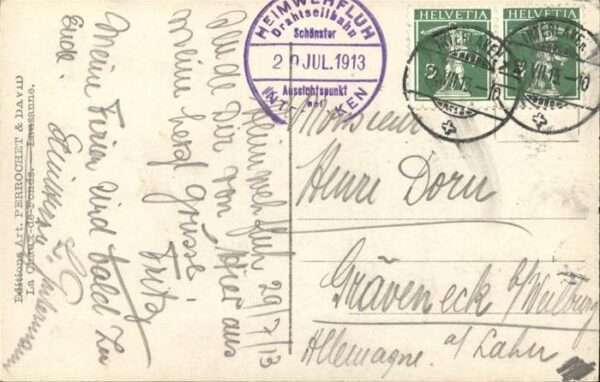 HEIMWEHFLUH
Drahtseilbahn
Schönster
29 JUL. 1913
Aussichtspunkt
bei
INTERLAKEN
HELVETIA
HELVETIA
5
INTERLAKEN
INTERLAKEN
Monsieur
Henri Dorn
Gräveneck b/Weilburg
a/Lahn
Allemagne.
Heimwehfluh 29/7/13
Sende Dir von hier aus
meine herzl grüsse.
Fritz
Meine Ferien sind bald zu
Ende.
Editions Art. PERROCHET & DAVID
La Chaux-de-Fonds. — Lausanne.